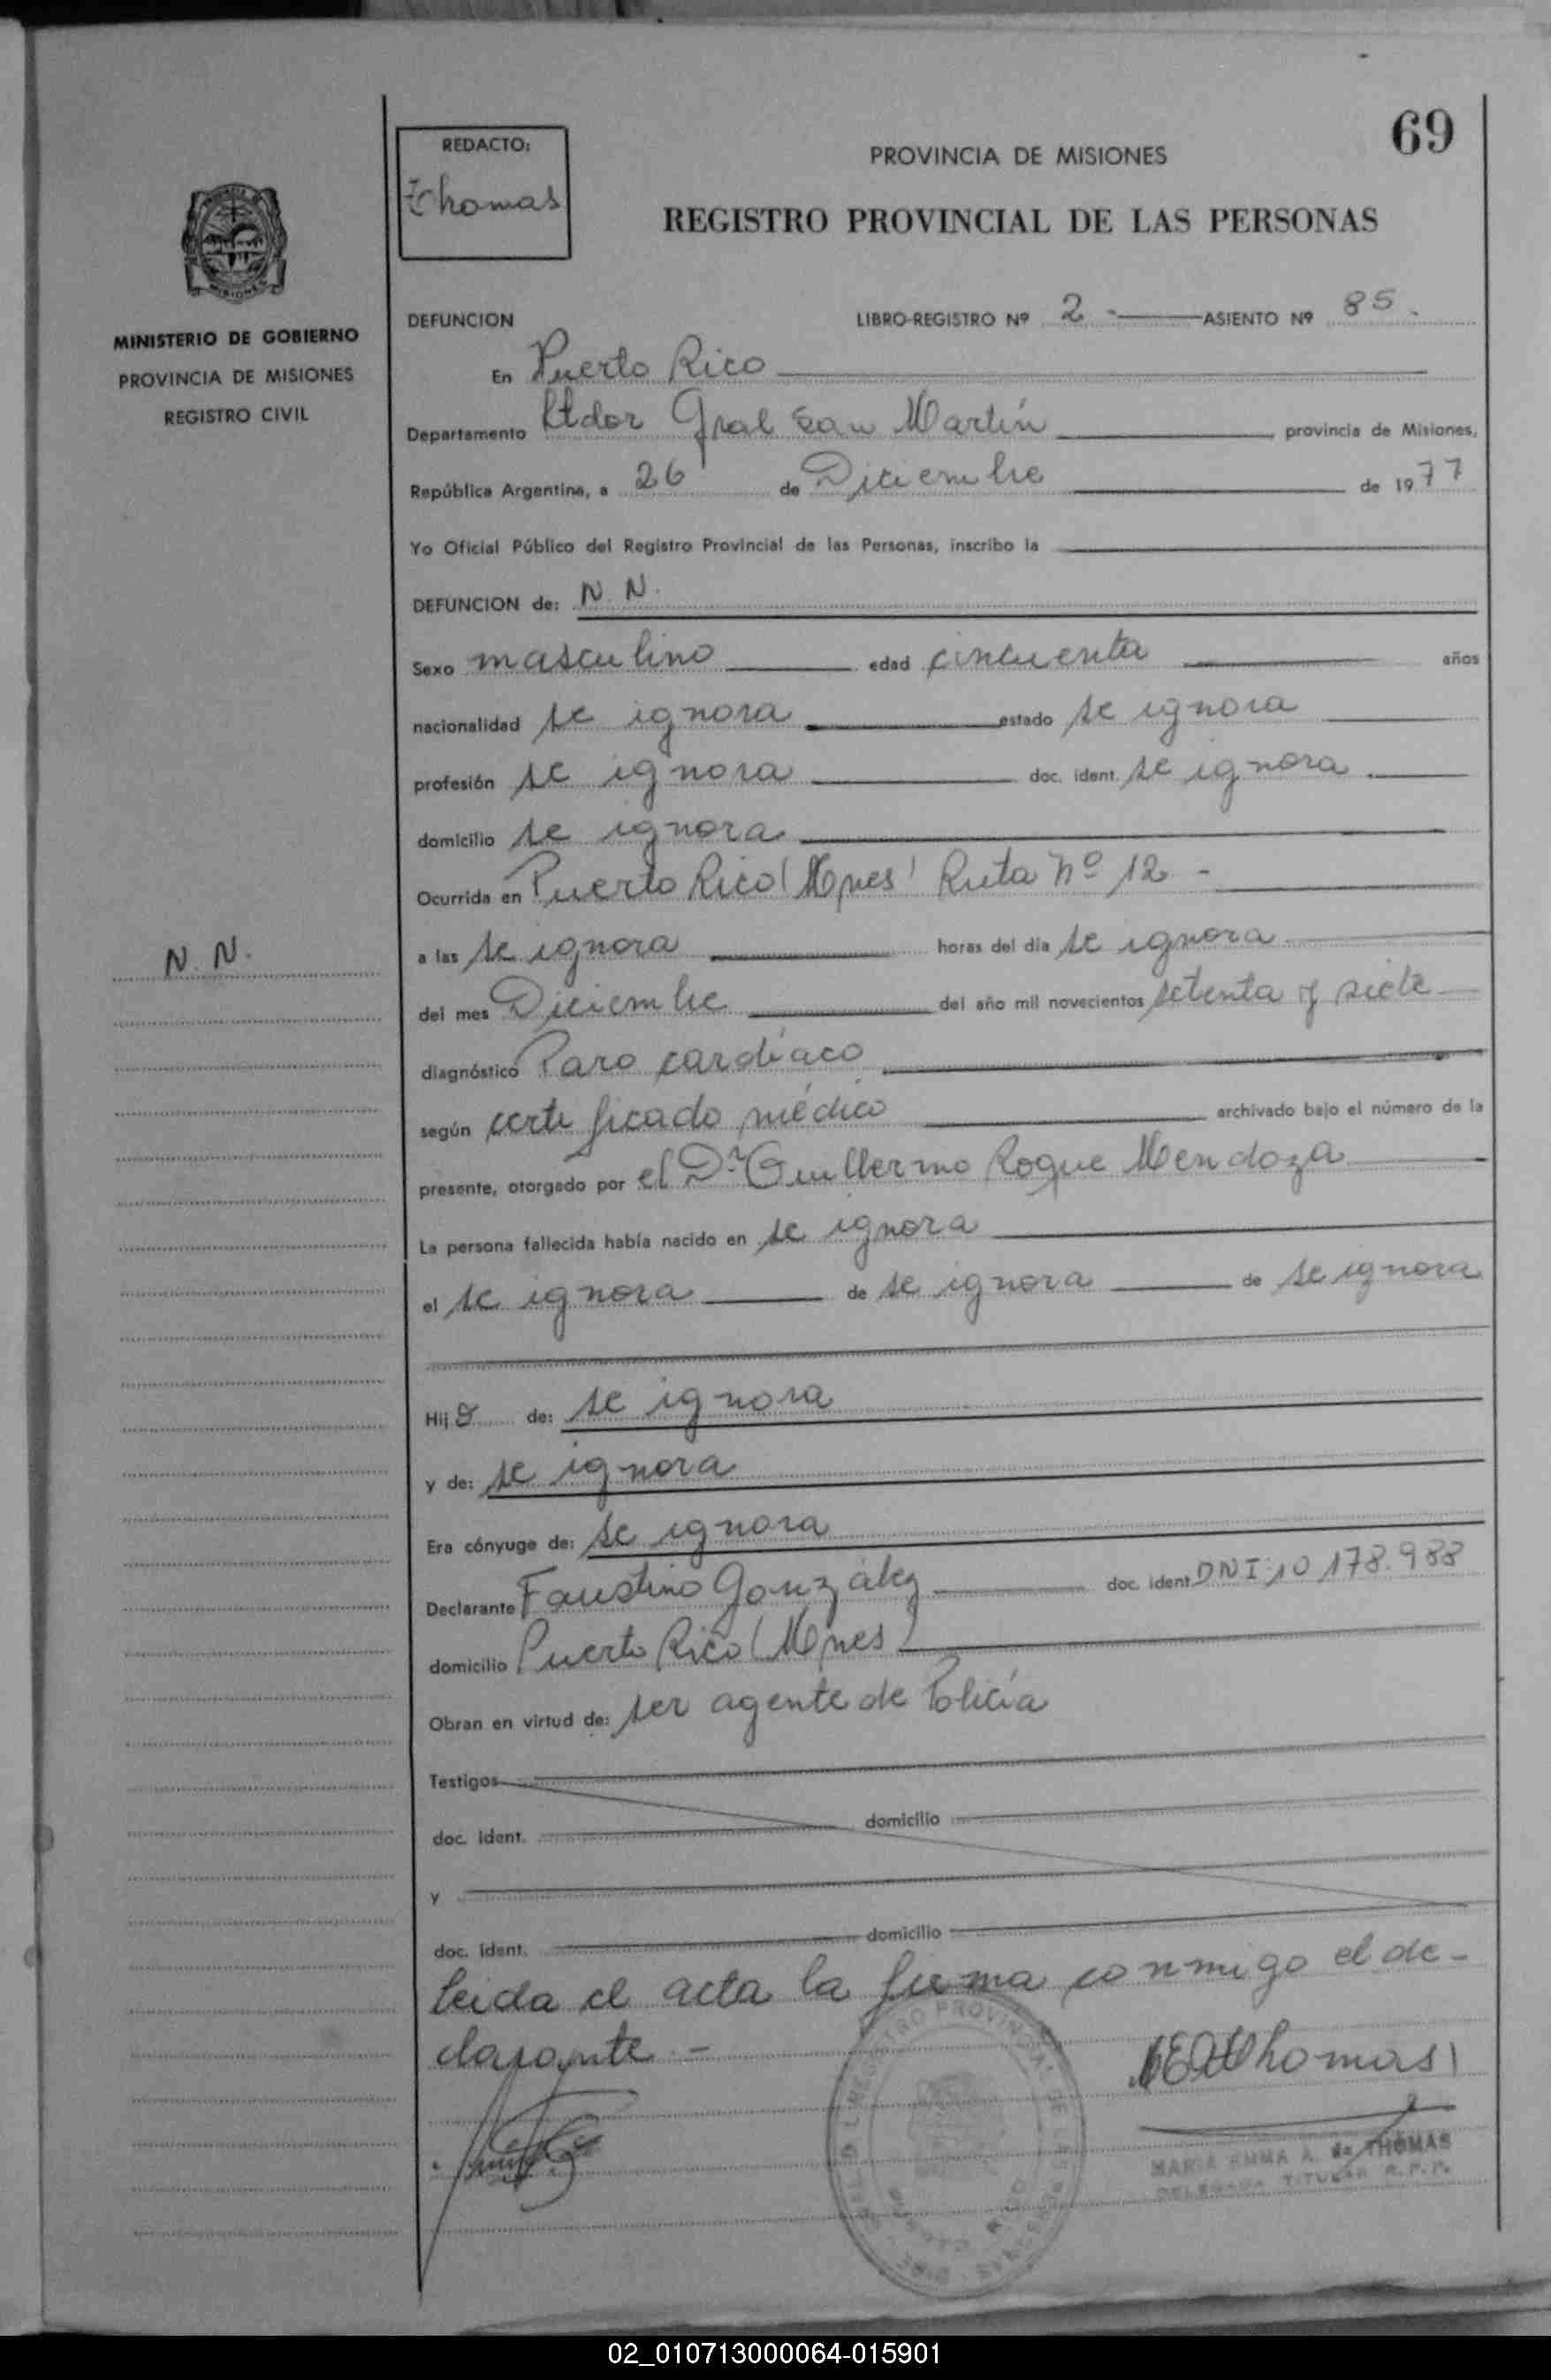 69
REDACTO:
Thomas
PROVINCIA DE MISIONES
REGISTRO PROVINCIAL DE LAS PERSONAS
MISIONES
MINISTERIO DE GOBIERNO
PROVINCIA DE MISIONES
REGISTRO CIVIL
DEFUNCION LIBRO-REGISTRO Nº 2 - ASIENTO Nº 85.
En Puerto Rico
Departamento Ltdor Gral San Martín provincia de Misiones,
República Argentina, a 26 de Diciembre de 1977
Yo Oficial Público del Registro Provincial de las Personas, inscribo la
DEFUNCION de: N. N.
Sexo masculino edad cincuenta años
nacionalidad se ignora estado se ignora
profesión se ignora doc. ident. se ignora
domicilio se ignora
Ocurrida en Puerto Rico (Mnes) Ruta Nº 12 -
N. N.
a las se ignora horas del día se ignora
del mes Diciembre del año mil novecientos setenta y siete
diagnóstico Paro cardíaco
según certificado médico archivado bajo el número de la
presente, otorgado por el Dr Guillermo Roque Mendoza
La persona fallecida había nacido en se ignora
el se ignora de se ignora de se ignora
Hijo de: se ignora
y de: se ignora
Era cónyuge de: se ignora
Declarante Faustino González doc. ident. DNI 10.178.988
domicilio Puerto Rico (Mnes)
Obran en virtud de: ser agente de Policía
Testigos
doc. ident. domicilio
y
doc. ident. domicilio
Leida el acta la firma conmigo el de-
clarante -
Thomas
MARIA EMMA A. de THOMAS
DELEGADA TITULAR R.P.P.
REGISTRO PROVINCIAL DE LAS PERSONAS
PUERTO RICO
02_010713000064-015901